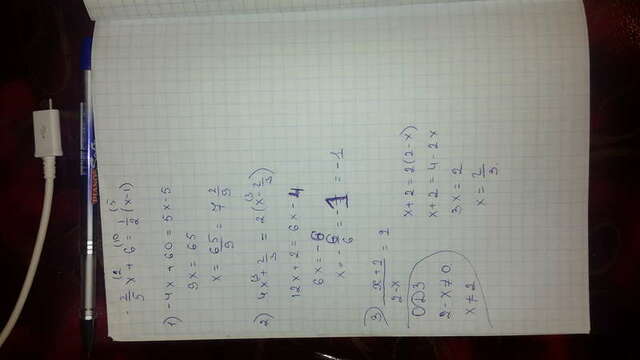 -2/5 x + 6 = 1/2 (x-1)
1) -4x + 60 = 5x - 5
9x = 65
x = 65/9 = 7 2/9
2) 4x + 2/3 = 2(x - 2/3)
12x + 2 = 6x - 4
6x = -6
x = -6/6 = -1 = -1
3) x+2/2-x = 2
ОДЗ
2-x≠0
x≠2
x+2 = 2(2-x)
x+2 = 4-2x
3x = 2
x = 2/3.